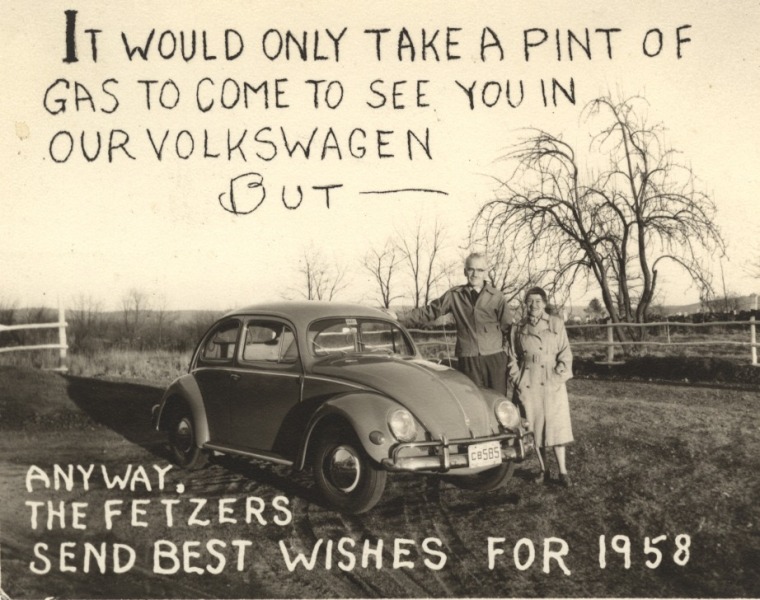 IT WOULD ONLY TAKE A PINT OF
GAS TO COME TO SEE YOU IN
OUR VOLKSWAGEN
BUT —
CB585
ANYWAY,
THE FETZERS
SEND BEST WISHES FOR 1958